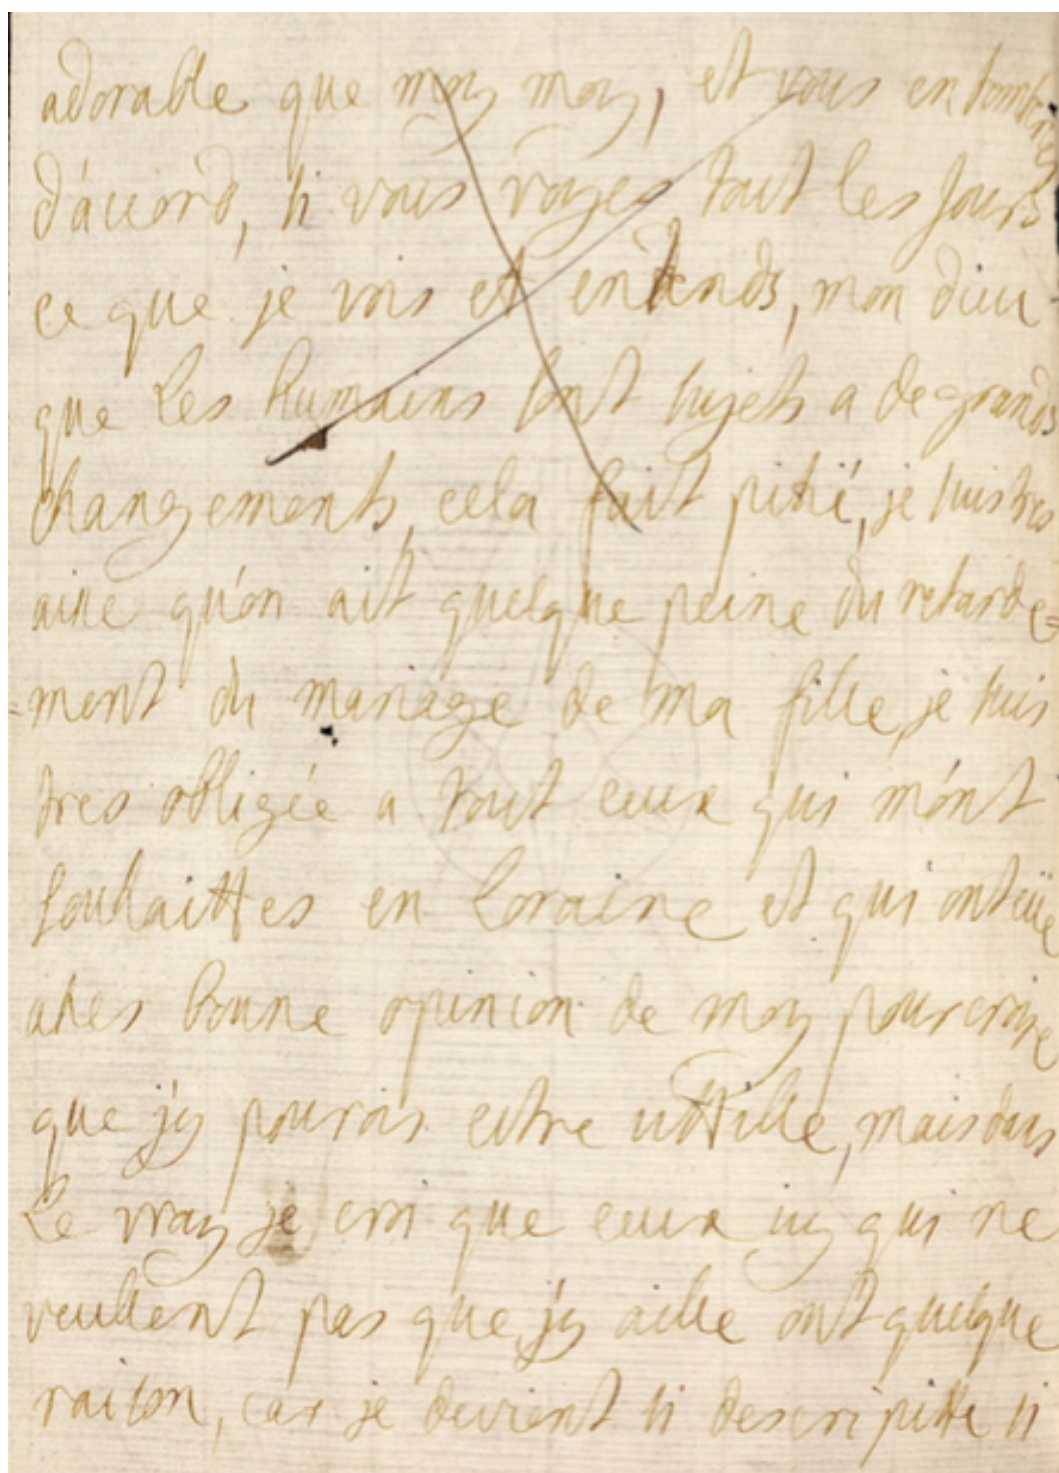 adorable que moy moy, et vous en tomberies
d'accord, si vous voyes tout les jours
ce que je vois et entends, mon dieu
que les humains sont sujets a de grands
changements, cela fait pitié, je suis tres
aise qu'on ait quelque peine du retarde=
=ment du mariage de ma fille, je suis
tres obligée a tout ceux qui m'ont
souhaittes en Loraine et qui ont eüe
asses bonne opinion de moy pour croire
que j'y pourois estre uttille, mais dans
le vray je croi que ceux icy qui ne
veullent pas que j'y aille ont quelque
raison, car je devient si descripitte si